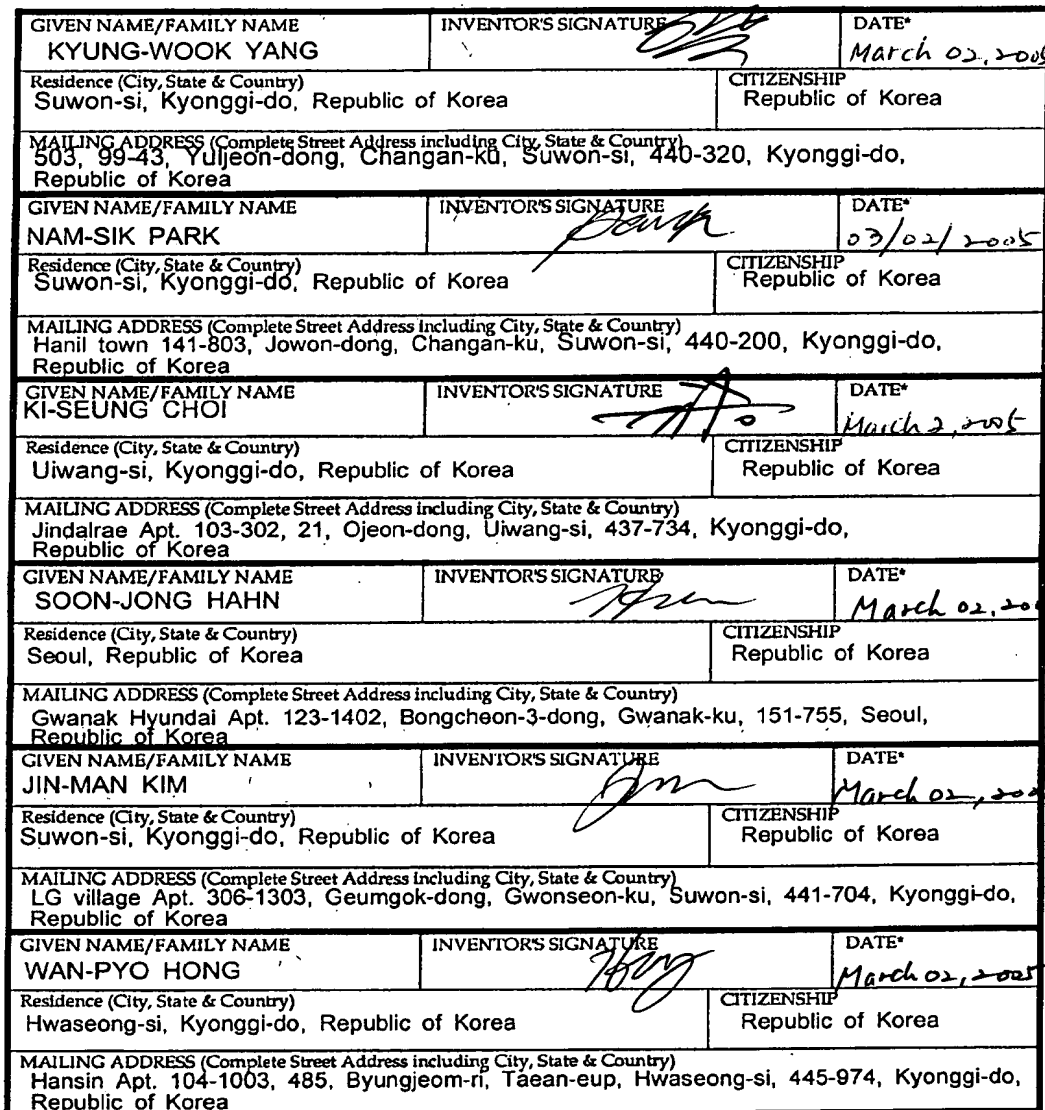 GIVEN NAME/FAMILY NAME INVENTOR'S SIGNATURE DATE*
KYUNG-WOOK YANG March 02, 2005
Residence (City, State & Country) CITIZENSHIP
Suwon-si, Kyonggi-do, Republic of Korea Republic of Korea
MAILING ADDRESS (Complete Street Address including City, State & Country)
503, 99-43, Yuljeon-dong, Changan-ku, Suwon-si, 440-320, Kyonggi-do,
Republic of Korea
GIVEN NAME/FAMILY NAME INVENTOR'S SIGNATURE DATE*
NAM-SIK PARK 03/02/2005
Residence (City, State & Country) CITIZENSHIP
Suwon-si, Kyonggi-do, Republic of Korea Republic of Korea
MAILING ADDRESS (Complete Street Address including City, State & Country)
Hanil town 141-803, Jowon-dong, Changan-ku, Suwon-si, 440-200, Kyonggi-do,
Republic of Korea
GIVEN NAME/FAMILY NAME INVENTOR'S SIGNATURE DATE*
KI-SEUNG CHOI March 2, 2005
Residence (City, State & Country) CITIZENSHIP
Uiwang-si, Kyonggi-do, Republic of Korea Republic of Korea
MAILING ADDRESS (Complete Street Address including City, State & Country)
Jindalrae Apt. 103-302, 21, Ojeon-dong, Uiwang-si, 437-734, Kyonggi-do,
Republic of Korea
GIVEN NAME/FAMILY NAME INVENTOR'S SIGNATURE DATE*
SOON-JONG HAHN March 02, 20
Residence (City, State & Country) CITIZENSHIP
Seoul, Republic of Korea Republic of Korea
MAILING ADDRESS (Complete Street Address including City, State & Country)
Gwanak Hyundai Apt. 123-1402, Bongcheon-3-dong, Gwanak-ku, 151-755, Seoul,
Republic of Korea
GIVEN NAME/FAMILY NAME INVENTOR'S SIGNATURE DATE*
JIN-MAN KIM March 02, 200
Residence (City, State & Country) CITIZENSHIP
Suwon-si, Kyonggi-do, Republic of Korea Republic of Korea
MAILING ADDRESS (Complete Street Address including City, State & Country)
LG village Apt. 306-1303, Geumgok-dong, Gwonseon-ku, Suwon-si, 441-704, Kyonggi-do,
Republic of Korea
GIVEN NAME/FAMILY NAME INVENTOR'S SIGNATURE DATE*
WAN-PYO HONG Hong March 02, 2005
Residence (City, State & Country) CITIZENSHIP
Hwaseong-si, Kyonggi-do, Republic of Korea Republic of Korea
MAILING ADDRESS (Complete Street Address including City, State & Country)
Hansin Apt. 104-1003, 485, Byungjeom-ri, Taean-eup, Hwaseong-si, 445-974, Kyonggi-do,
Republic of Korea